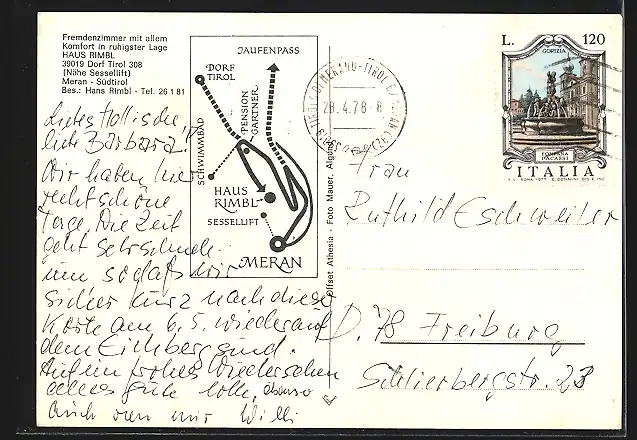 Fremdenzimmer mit allem
Komfort in ruhigster Lage
HAUS RIMBL
39019 Dorf Tirol 308
(Nähe Sessellift)
Meran - Südtirol
Bes.: Hans Rimbl - Tel. 26 1 81
JAUFENPASS
DORF
TIROL
PENSION
GARTNER
SCHWIMMBAD
HAUS
RIMBL
SESSELLIFT
MERAN
28.4.78-8
L. 120
GORIZIA
FONTANA
PACASSI
ITALIA
Offset Athesia - Foto Mauer, Algund
Liebes
liebe Barbara!
Wir haben hier
recht schöne
Tage. Die Zeit
geht sehr schnell
um sodaß wir
sicher kurz nach dieser
Karte am 6.5. wieder auf
dem Eichberg sind.
Auf ein frohes Wiedersehen
alles gute Lotte, ebenso
auch von mir Willi
Frau
Ruthild Eschweiler
D. 78 Freiburg
Schlierbergstr. 23